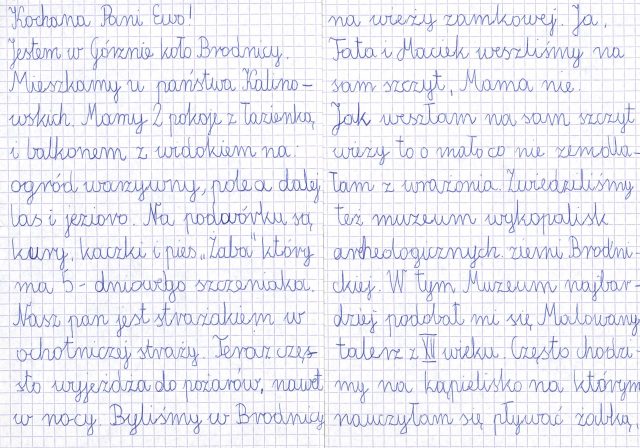 Kochana Pani Ewo!
Jestem w Górznie koło Brodnicy.
Mieszkamy u państwa Kalino-
wskich. Mamy 2 pokoje z łazienką
i balkonem z widokiem na
ogród warzywny, pole a dalej
las i jezioro. Na podwórku są
kury, kaczki i pies „Żaba" który
ma 5-dniowego szczeniaka.
Nasz pan jest strażakiem w
ochotniczej straży. Teraz częs-
to wyjeżdza do pożarów, nawet
w nocy. Byliśmy w Brodnicy
na wieży zamkowej. Ja,
Tata i Maciek weszliśmy na
sam szczyt, Mama nie.
Jak weszłam na sam szczyt
wieży to o mało co nie zemdla-
łam z wrażenia. Zwiedziliśmy
też muzeum wykopalisk
archeologicznych ziemi Brodni-
ckiej. W tym Muzeum najbar-
dziej podobał mi się Malowany
talerz z XII wieku. Często chodzi-
my na kąpielisko na którym
nauczyłam się pływać żabką,